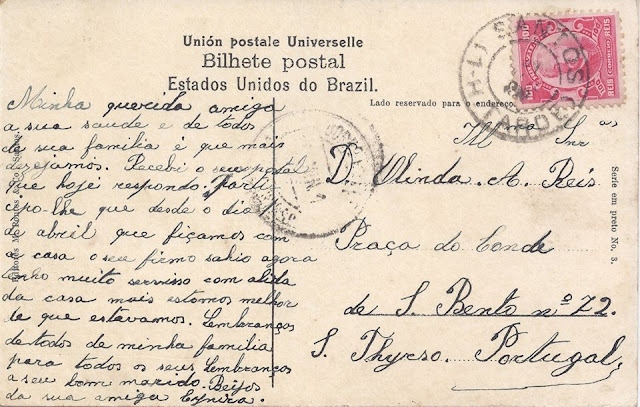 Unión postale Universelle
Bilhete postal
Estados Unidos do Brazil.
Lado reservado para o endereço.
Minha querida amiga
a sua saude e de todos
da sua familia é que mais
desejamos. Recebi o seu postal
que hoje respondo. parti
cipo-lhe que desde o dia
de abril que fiçamos com
a casa o seu firmo sahio agora
tenho muito servisso com a lida
da casa mais estamos melhor
de que estavamos. Lembranços
de todos de minha familia
para todos os seus Lembranços
a seu bom marido. Beijos
da sua amiga
Illma Snr.ª
D. Olinda. A. Reis.
Praça do Conde
de S. Bento nº 72.
S. Thyrso. Portugal
Serie em preto No. 3.
SANTOS
100 REIS
CORREIO